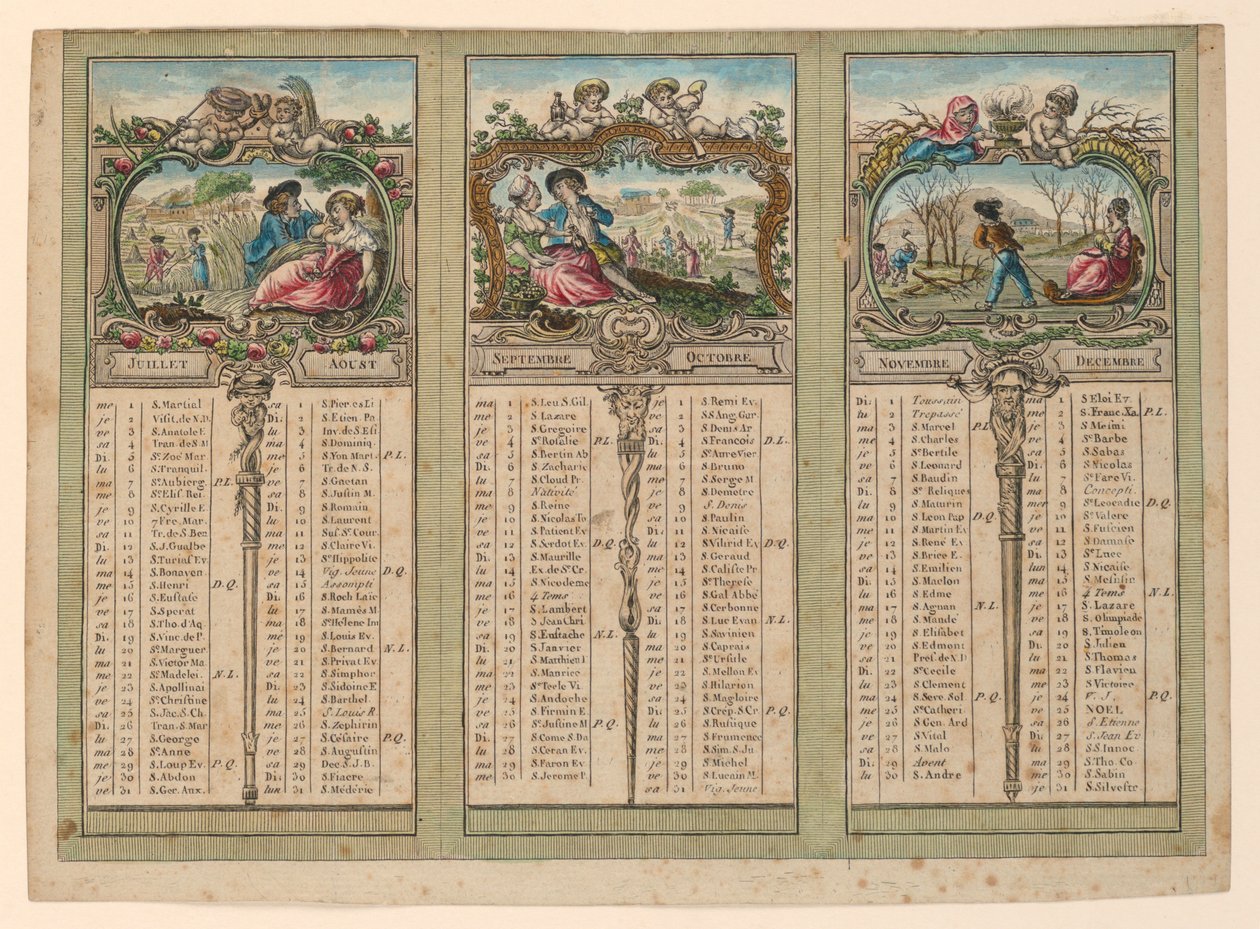 JUILLET
me 1 S. Martial
je 2 Visit. de N.D.
ve 3 S. Anatole E
sa 4 Tran. de S.M
Di. 5 Ste Zoé Mar.
lu 6 S. Tranquil.
ma 7 Ste Aubierg. P.L.
me 8 Ste Elis. Rei.
je 9 S. Cyrille E.
ve 10 7 Fre. Mar.
sa 11 Tr. de S. Ben
Di. 12 S. J. Gualbe
lu 13 S. Turiaf Ev.
ma 14 S. Bonaven
me 15 S. Henri D.Q.
je 16 S. Eustase
ve 17 S. Sperat
sa 18 S. Tho. d'Aq.
Di. 19 S. Vinc. de P.
lu 20 Ste Marguer.
ma 21 S. Victor Ma.
me 22 Ste Madelei. N.L.
je 23 S. Apollinai
ve 24 Ste Christine
sa 25 S. Jac. S. Ch.
Di. 26 Tran. S. Mar
lu 27 S. George
ma 28 Ste Anne
me 29 S. Loup Ev. P.Q.
je 30 S. Abdon
ve 31 S. Ger. Aux.
AOUST
sa 1 S. Pier. es Li
Di. 2 S. Etien. Pa.
lu 3 Inv. de S. Eti
ma 4 S. Dominiq.
me 5 S. Yon Mart. P.L.
je 6 Tr. de N.S.
ve 7 S. Gaetan
sa 8 S. Justin M.
Di. 9 S. Romain
lu 10 S. Laurent
ma 11 Sus. Ste Cour.
me 12 S. Claire Vi.
je 13 St Hippolite
ve 14 Vig. Jeune D.Q.
sa 15 Assompti
Di. 16 S. Roch Laïc
lu 17 S. Mamés M.
ma 18 Ste Helene Im
me 19 S. Louis Ev.
je 20 S. Bernard N.L.
ve 21 S. Privat Ev.
sa 22 S. Simphor
Di. 23 S. Sidoine E
lu 24 S. Barthel.
ma 25 S. Louis R.
me 26 S. Zephirin
je 27 S. Césaire P.Q.
ve 28 S. Augustin
sa 29 Dec. S. J. B.
Di. 30 S. Fiacre
lun 31 S. Médéric
SEPTEMBRE
ma 1 S. Leu S. Gil.
me 2 S. Lazare
je 3 S. Gregoire
ve 4 Ste Rosalie P.L.
sa 5 S. Bertin Ab
Di. 6 S. Zacharie
lu 7 S. Cloud Pr.
ma 8 Nativité
me 9 S. Reine
je 10 S. Nicolas To
ve 11 S. Patient Ev
sa 12 S. Serdot Ev. D.Q.
Di. 13 S. Maurille
lu 14 Ex. de Ste Cr.
ma 15 S. Nicodeme
me 16 4 Tems
je 17 S. Lambert
ve 18 S. Jean Chri
sa 19 S. Eustache N.L.
Di. 20 S. Janvier
lu 21 S. Matthieu
ma 22 S. Maurice
me 23 Ste Tecle Vi.
je 24 S. Andoche
ve 25 S. Firmin E
sa 26 Ste Justine M P.Q.
Di. 27 S. Come S. Da
lu 28 S. Ceran Ev.
ma 29 S. Faron Ev.
me 30 S. Jerome P.
OCTOBRE
je 1 S. Remi Ev.
ve 2 S.S Ang. Gar.
sa 3 S. Denis Ar
Di. 4 S. Francois D.L.
lu 5 Ste Aure Vier
ma 6 S. Bruno
me 7 S. Serge M.
je 8 S. Demetre
ve 9 S. Denis
sa 10 S. Paulin
Di. 11 S. Nicaise
lu 12 S. Vilfrid Ev D.Q.
ma 13 S. Geraud
me 14 S. Caliste Pr
je 15 Ste Therese
ve 16 S. Gal Abbé
sa 17 S. Cerbonne
Di. 18 S. Luc Evan N.L.
lu 19 S. Savinien
ma 20 S. Caprais
me 21 Ste Ursule
je 22 S. Mellon Ev
ve 23 S. Hilarion
sa 24 S. Magloire
Di. 25 S. Crép. S. Cr P.Q.
lu 26 S. Rustique
ma 27 S. Frumence
me 28 S. Sim. S. Ju
je 29 S. Michel
ve 30 S. Lucain M.
sa 31 Vig. Jeune
NOVEMBRE
Di. 1 Toussain
lu 2 Trepassé
ma 3 S. Marcel P.L
me 4 S. Charles
je 5 Ste Bertile
ve 6 S. Leonard
sa 7 S. Baudin
Di. 8 Stes Reliques
lu 9 S. Maturin
ma 10 S. Leon Pap D.Q.
me 11 S. Martin Ev
je 12 S. René Ev
ve 13 S. Brice E.
sa 14 S. Emilien
Di. 15 S. Maclon
lu 16 S. Edme
ma 17 S. Agnan N.L.
me 18 S. Mandé
je 19 S. Elisabet
ve 20 S. Edmont
sa 21 Pres. de N.D
Di. 22 Ste Cecile
lu 23 S. Clement
ma 24 S. Seve. Sol P.Q.
me 25 Ste Catheri
je 26 S. Gen. Ard
ve 27 S. Vital
sa 28 S. Malo
Di. 29 Avent
lu 30 S. Andre
DECEMBRE
ma 1 S. Eloi Ev.
me 2 S. Franc. Xa. P.L.
je 3 S. Mesmi
ve 4 Ste Barbe
sa 5 S. Sabas
Di. 6 S. Nicolas
lu 7 Ste Fare Vi.
ma 8 Concepti.
mer 9 Ste Leocadie D.Q.
je 10 Ste Valere
ve 11 S. Fuscien
sa 12 S. Damase
Di. 13 Ste Luce
lun 14 S. Nicaise
ma 15 S. Mesmin
me 16 4 Tems N.L.
je 17 S. Lazare
ve 18 S. Olimpiade
sa 19 S. Timoleon
Di. 20 S. Julien
lu 21 S. Thomas
ma 22 S. Flavien
me 23 S. Victoire
je 24 V.J. P.Q.
ve 25 NOEL
sa 26 S. Etienne
Di. 27 S. Jean Ev.
lu 28 S.S. Innoc.
ma 29 S. Tho. Co
me 30 S. Sabin
je 31 S. Silvestr